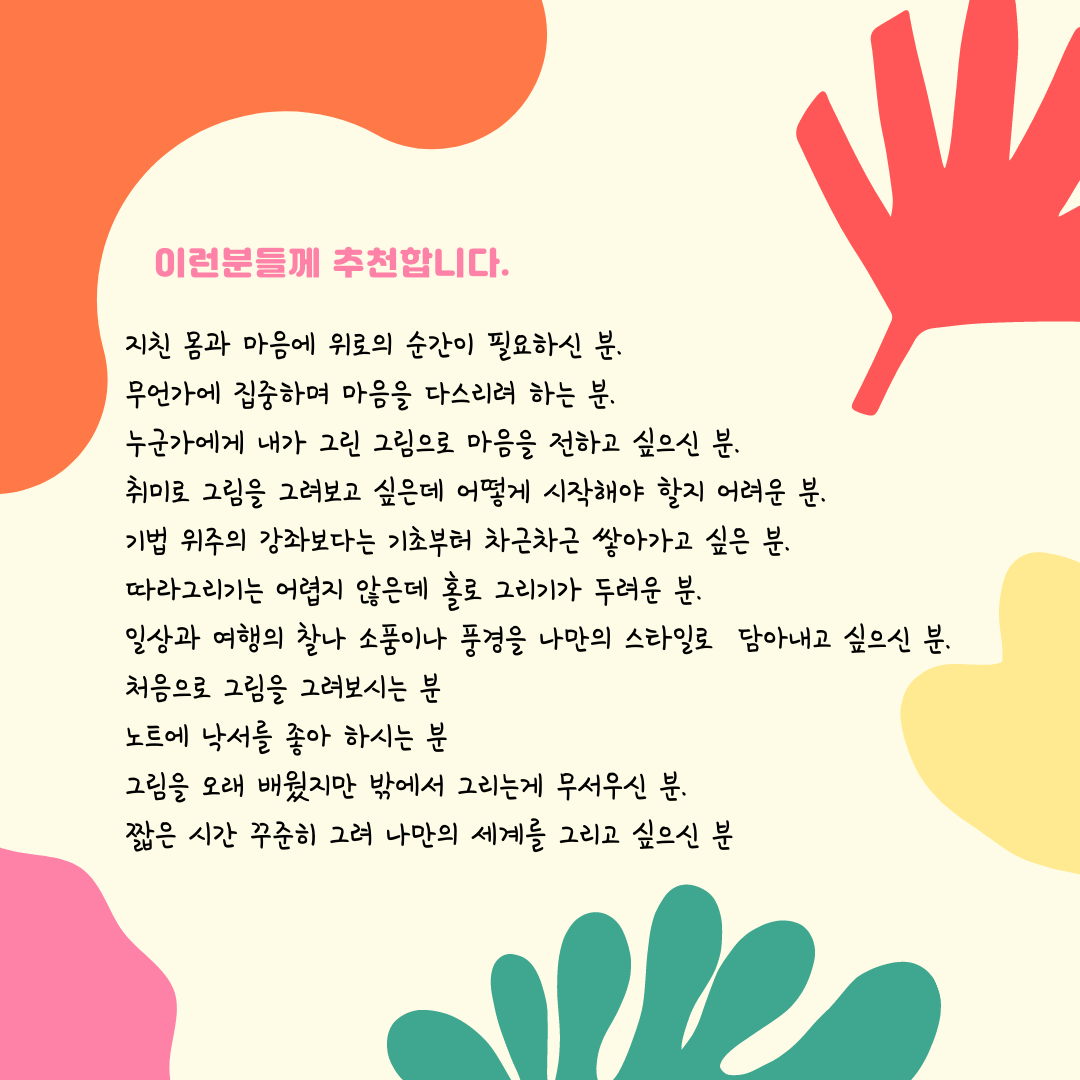 이런분들께 추천합니다.
지친 몸과 마음에 위로의 순간이 필요하신 분.
무언가에 집중하며 마음을 다스리려 하는 분.
누군가에게 내가 그린 그림으로 마음을 전하고 싶으신 분.
취미로 그림을 그려보고 싶은데 어떻게 시작해야 할지 어려운 분.
기법 위주의 강좌보다는 기초부터 차근차근 쌓아가고 싶은 분.
따라그리기는 어렵지 않은데 홀로 그리기가 두려운 분.
일상과 여행의 찰나 소품이나 풍경을 나만의 스타일로  담아내고 싶으신 분.
처음으로 그림을 그려보시는 분
노트에 낙서를 좋아 하시는 분
그림을 오래 배웠지만 밖에서 그리는게 무서우신 분.
짧은 시간 꾸준히 그려 나만의 세계를 그리고 싶으신 분